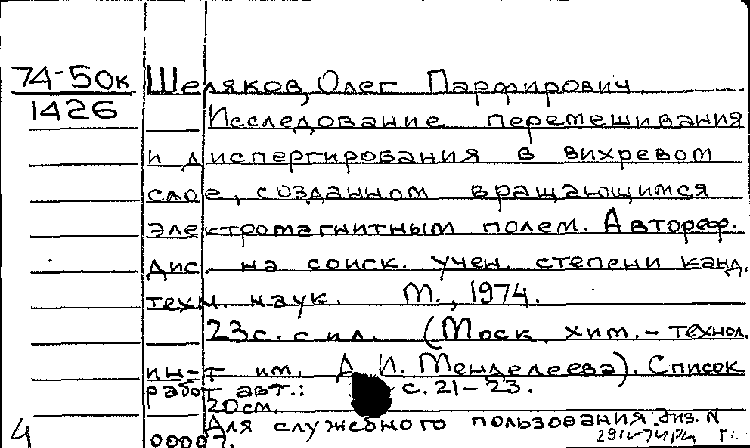 74-50к Шеляков, Олег Парфирович
1426
Исследование перемешивания
и диспергирования в вихревом
слое, созданном вращающимся
электромагнитным полем. Автореф.
дис. на соиск. учен. степени канд.
техн. наук. М., 1974.
23 с. с ил. (Моск. хим.-технол.
ин-т им. Д. И. Менделеева). Список
работ авт.: с. 21-23.
20 см.
Для служебного пользования. Экз. N
4 00007.